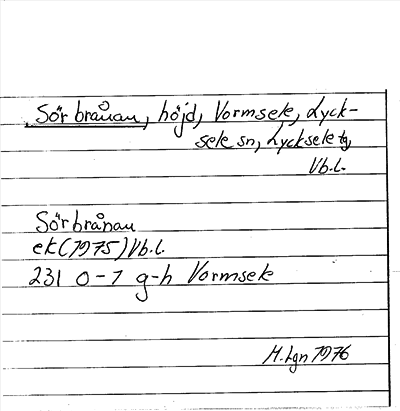 Sörbrånan, höjd, Vormsele, Lyck-
sele sn, Lycksele tg,
Vb.l.
Sörbrånan
ek (1975) Vb.l.
231 0-1 g-h Vormsele
M.Lgn 1976